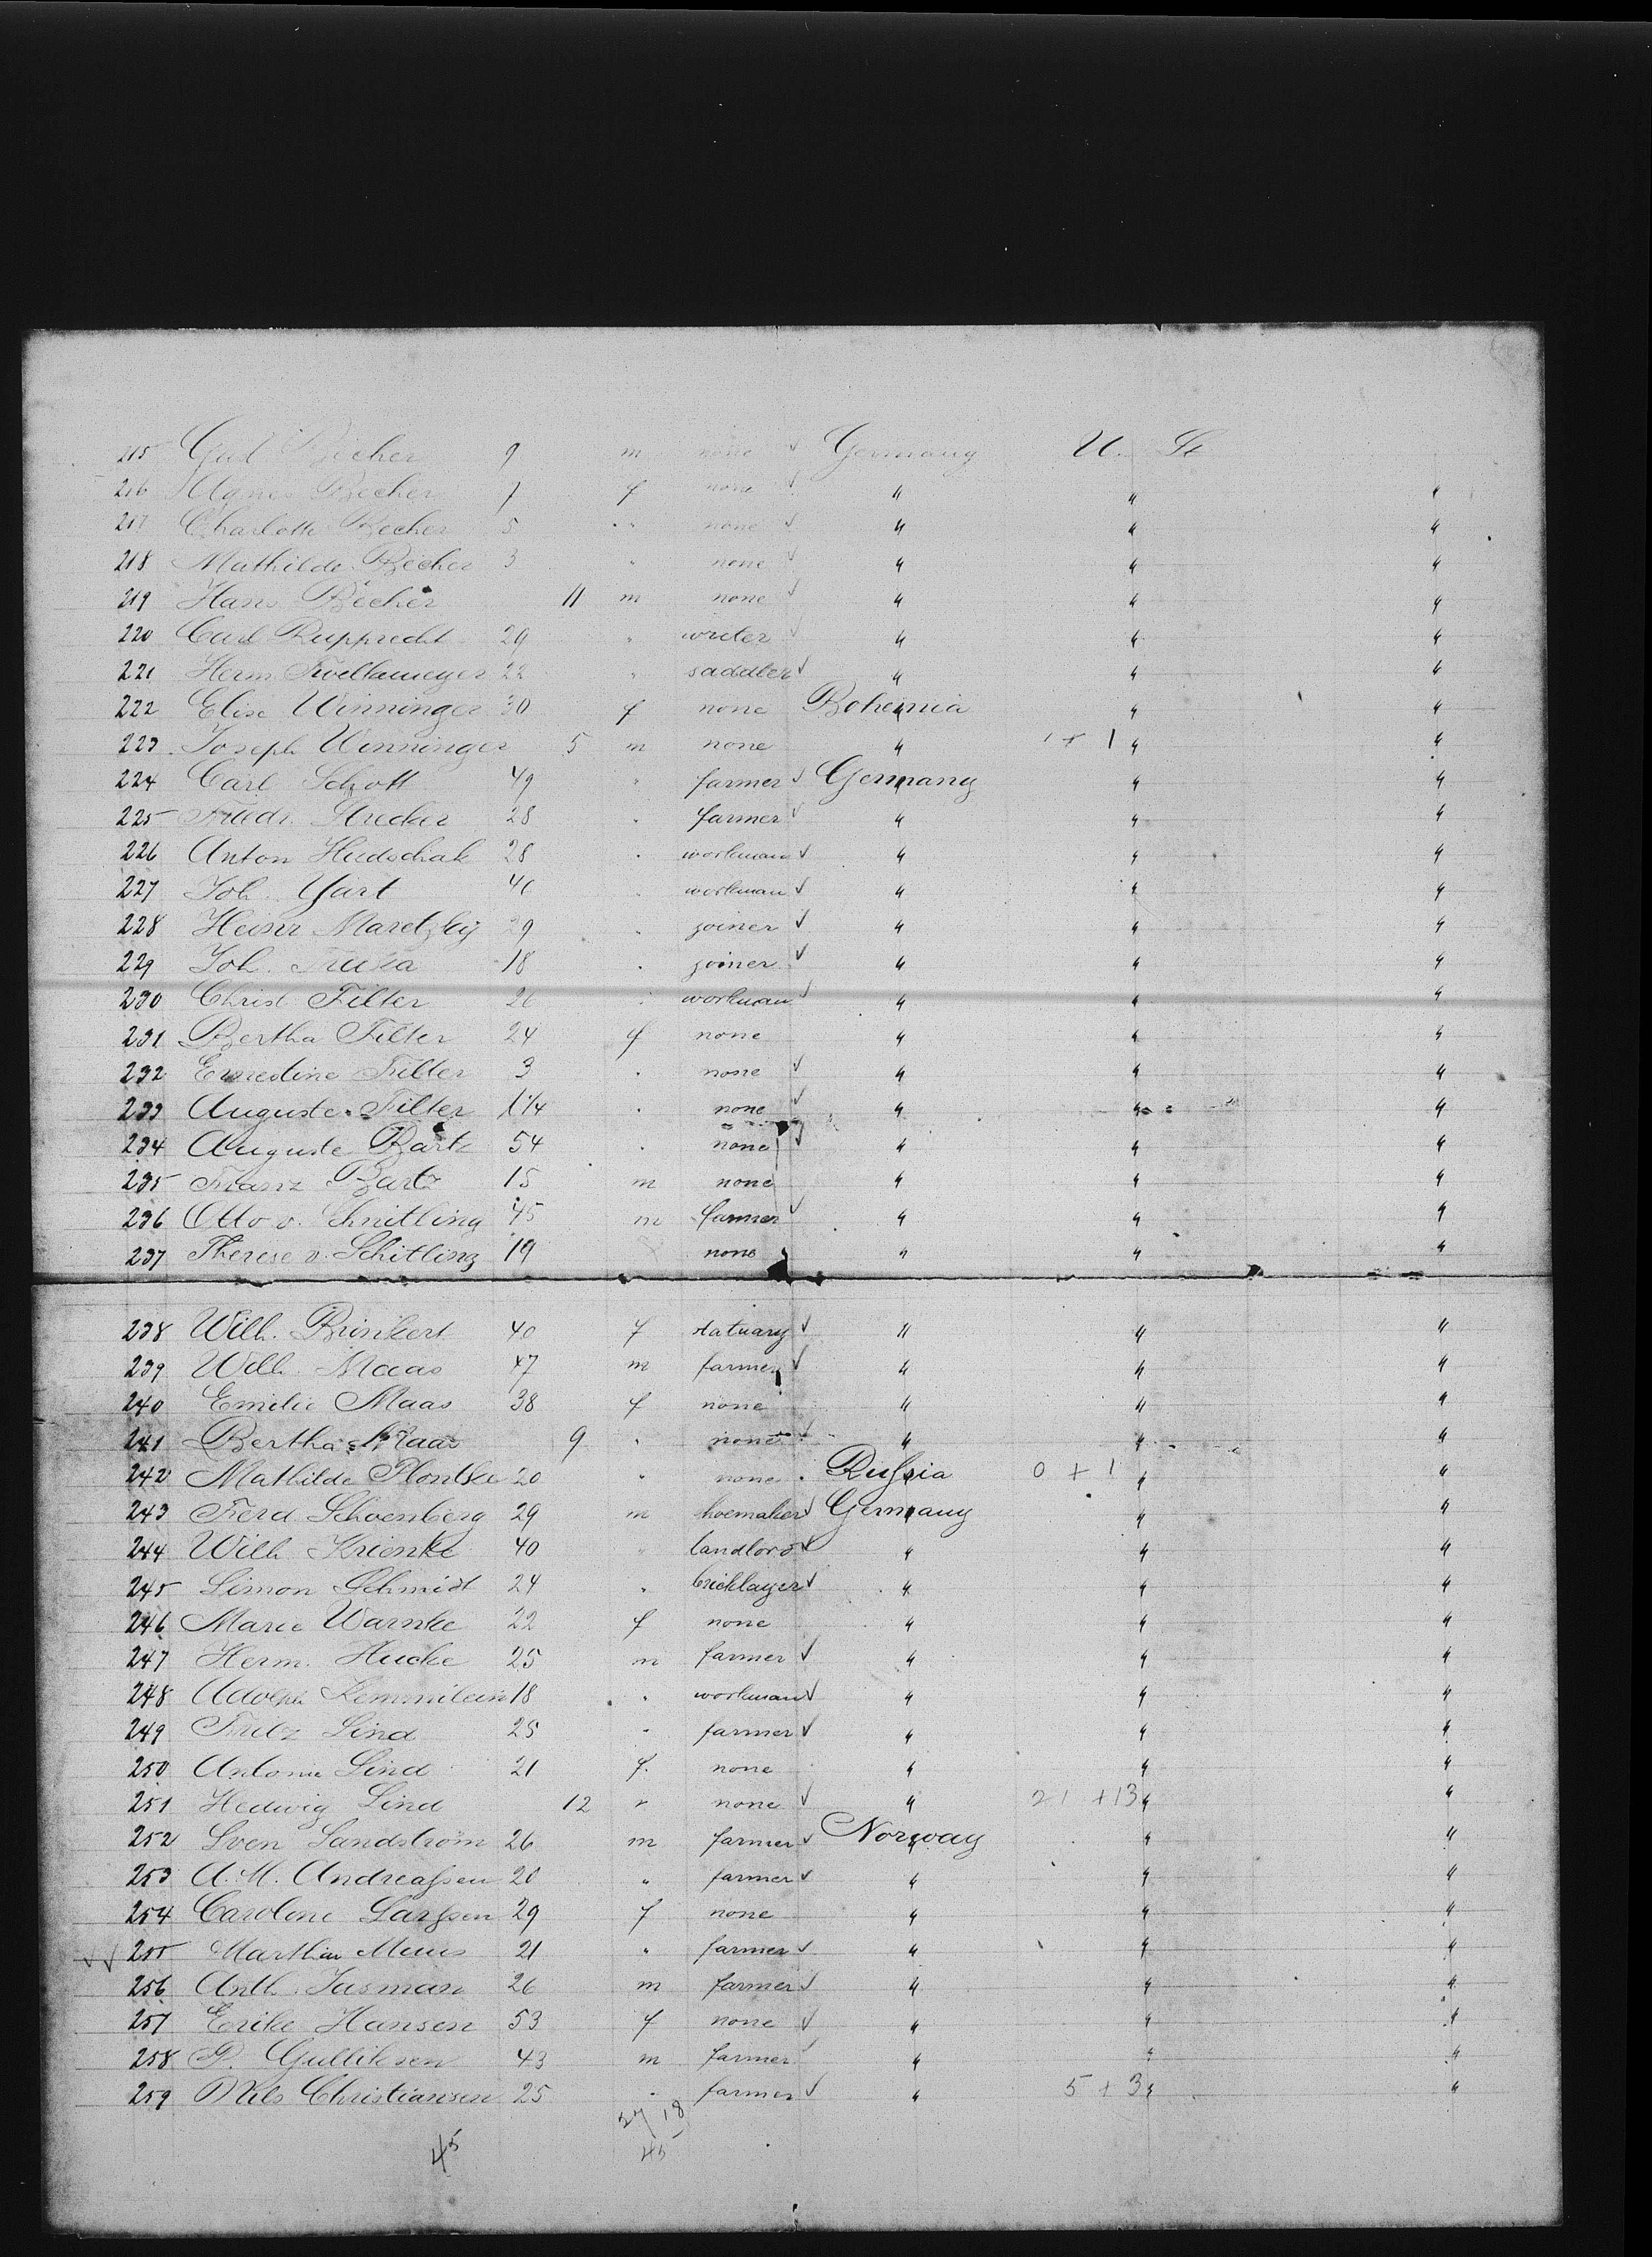 215 Becher 9 m none ✓ Germany U. St
216 Agnes Becher 7 f none ✓ " " "
217 Charlotte Becher 5 " none ✓ " " "
218 Mathilde Becher 3 " none ✓ " " "
219 Hans Becher 11 m none ✓ " " "
220 Carl Rupprecht 29 " writer ✓ " " "
221 Herm. 22 " saddler ✓ " " "
222 Elise Winninger 30 f none Bohemia " "
223 Joseph Winninger 5 m none " 1 + 1 " "
224 Carl Schott 49 " farmer ✓ Germany " "
225 Friedr. Strecker 28 " farmer ✓ " " "
226 Anton Hudschak 28 " workman ✓ " " "
227 Joh. Yart workman ✓ " " "
228 Heinr Maretzky 29 " joiner ✓ " " "
229 Joh. 18 " joiner ✓ " " "
230 Christ Filter 26 " workman ✓ " " "
231 Bertha Filter 24 f none " " "
232 Ernestine Filter 3 " none ✓ " " "
233 Auguste Filter 1 1/4 " none ✓ " " "
234 Auguste Bartz 54 " none ✓ " " "
235 Franz Bartz 15 m none " " "
236 Otto v. 45 m farmer ✓ " " "
237 Therese v. Schitling 19 none " " "
238 Wilh. Brinkert 40 f statuary ✓ " " "
239 Wilh. Maas 47 m farmer ✓ " " "
240 Emilie Maas 38 f none " " "
241 Bertha Maas 9 " none ✓ " " "
242 Mathilde Plontke 20 " none Russia 0 + 1 " "
243 Ferd. Schoenberg 29 m shoemaker ✓ Germany " "
244 Wilh Krienke 40 " landlord ✓ " " "
245 Simon Schmidt 24 " bricklayer ✓ " " "
246 Marie Warnke 22 f none " " "
247 Herm. Hucke 25 m farmer ✓ " " "
248 Adolph 18 " workman ✓ " " "
249 Fritz Lind 25 " farmer ✓ " " "
250 Antonie Lind 21 f. none " " "
251 Hedwig Lind 12 " none ✓ " 21 + 13 " "
252 Sven Sandström 26 m farmer ✓ Norway " "
253 A. M. Andreassen 20 " farmer ✓ " " "
254 Caroline Larssen 29 f none " " "
✓✓ 255 Marthin 21 " farmer ✓ " " "
256 Anth. Jusman 26 m farmer ✓ " " "
257 Erike Hansen 53 f none ✓ " " "
258 P. Gulliksen 43 m farmer ✓ " " "
259 Nils Christiansen 25 " farmer ✓ " 5 + 3 " "
27 18
45 45